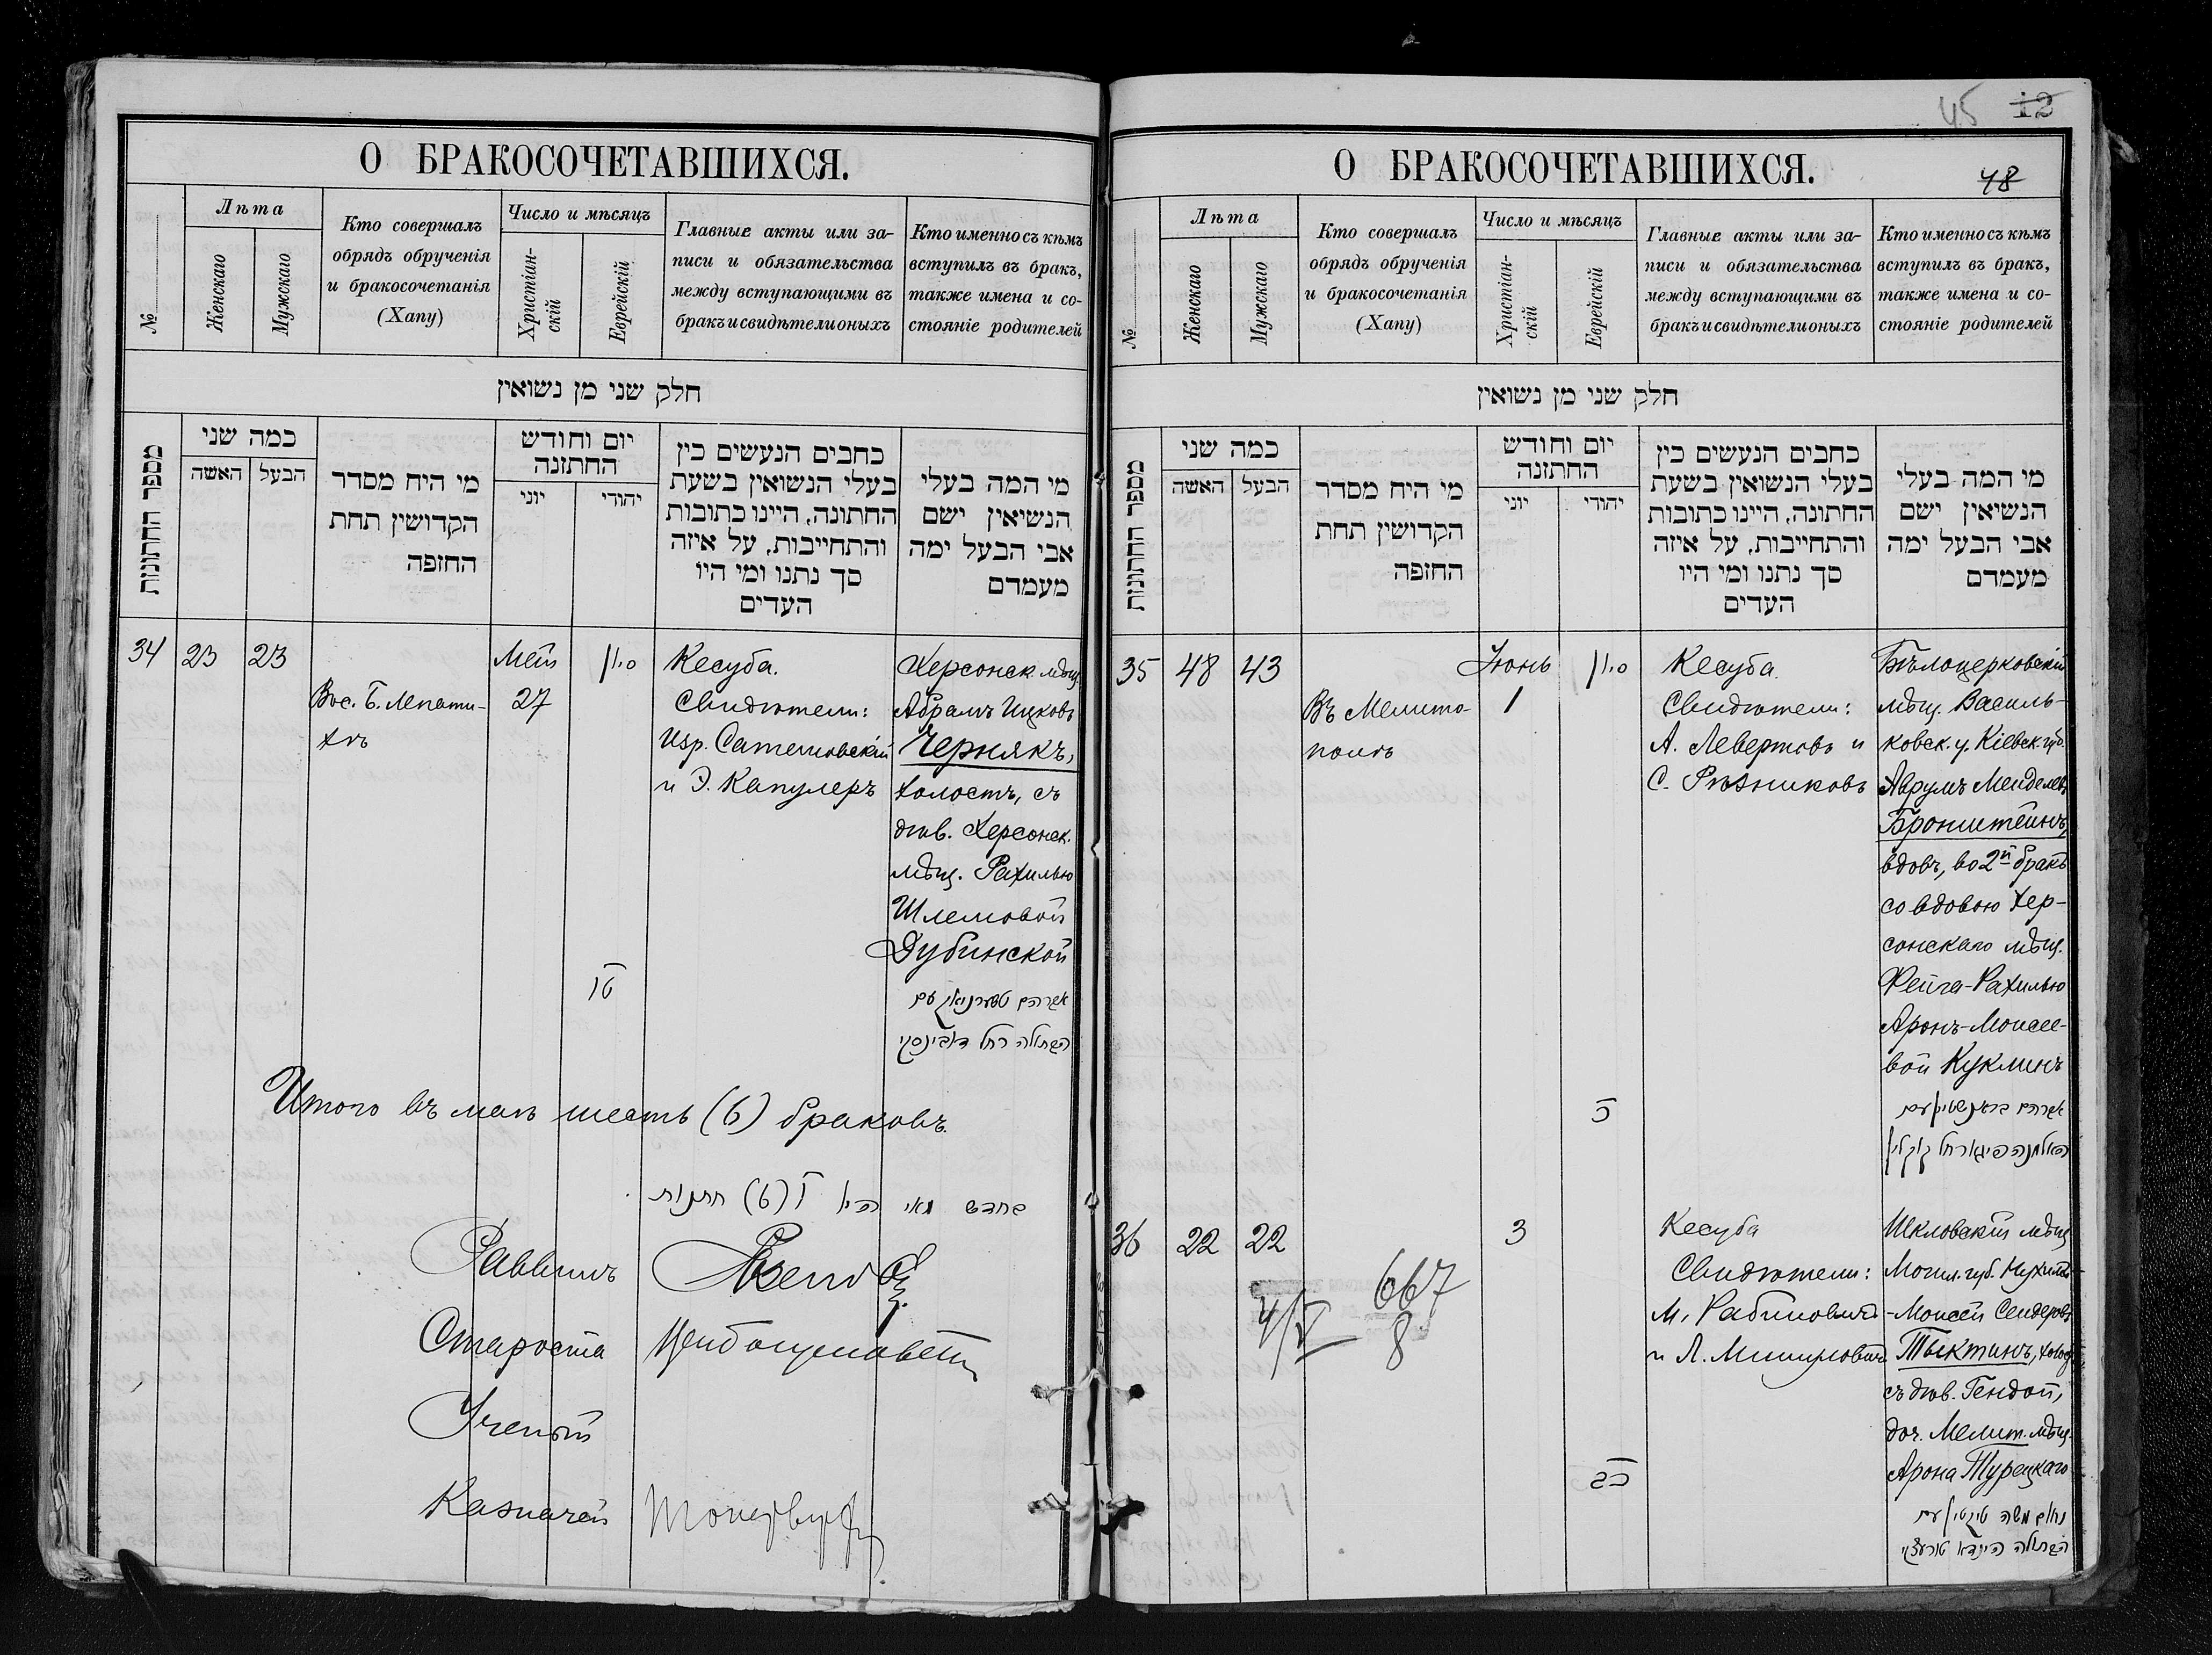 О БРАКОСОЧЕТАВШИХСЯ.
№
Лѣта
Женскаго
Мужскаго
Кто совершалъ
обрядъ обрученія
и бракосочетанія
(Хапу)
Число и мѣсяцъ
Христіан-
скій
Еврейскій
Главные акты или за-
писи и обязательства
между вступающими въ
бракъ и свидѣтели оныхъ
Кто именно съ кѣмъ
вступилъ въ бракъ,
также имена и со-
стояніе родителей
חלק שני מן נשואין
מספר החתונות
כמה שני
האשה
הבעל
מי היח מסדר
הקדושין תחת
החזפה
יום וחודש
החתזנה
יוני
יהודי
כחבים הנעשים כין
בעלי הנשואין בשעת
החתונה, היינו כתובות
והתחייבות, על איזה
סך נתנו ומי היו
העדים
מי המה בעלי
הנשיאין ישם
אבי הבעל ימה
מעמדם
34
23
23
Вос. Б. Лепати-
хѣ
Май
27
סיון
טו
Кесуба.
Свидѣтели:
Изр.
и Э. Капулеръ
Херсонск. мѣщ.
Абрамъ Ицковъ
Чернякъ,
холостъ, съ
дѣв. Херсонск.
мѣщ. Рахилью
Шлемовой
Дубинской
אברהם טשערניאק עם
הבתולה רחל דובינסקי
Итого въ маѣ шесть (6) браковъ.
בחדש מאי היו ו (6) חתונות
Раввинъ
Староста
Ученый
Казначей
45
12
О БРАКОСОЧЕТАВШИХСЯ.
48
№
Лѣта
Женскаго
Мужскаго
Кто совершалъ
обрядъ обрученія
и бракосочетанія
(Хапу)
Число и мѣсяцъ
Христіан-
скій
Еврейскій
Главные акты или за-
писи и обязательства
между вступающими въ
бракъ и свидѣтели оныхъ
Кто именно съ кѣмъ
вступилъ въ бракъ,
также имена и со-
стояніе родителей
חלק שני מן נשואין
מספר החתונות
כמה שני
האשה
הבעל
מי היח מסדר
הקדושין תחת
החזפה
יום וחודש
החתזנה
יוני
יהודי
כחבים הנעשים כין
בעלי הנשואין בשעת
החתונה, היינו כתובות
והתחייבות, על איזה
סך נתנו ומי היו
העדים
מי המה בעלי
הנשיאין ישם
אבי הבעל ימה
מעמדם
35
48
43
Въ Мелито-
полѣ
Іюнь
1
סיון
כ
Кесуба
Свидѣтели:
А. Левертовъ и
С. Рѣзниковъ
Бѣлоцерковскій
мѣщ. Василь-
ковск. у. Кіевск. губ.
Аврумъ Менделевъ
Бронштейнъ,
вдовъ, во 2й бракъ
со вдовою Хер-
сонскаго мѣщ.
Фейга-Рахилью
Аронъ-Моисее-
вой Куклинъ
אברהם בראנשטיין עם
האלמנה פייגא רחל קוקלין
36
22
22
4/V
667
8
3
כב
Кесуба
Свидѣтели:
М. Рабиновичъ
и Л.
Шкловскій мѣщ.
Могил. губ. Нухимъ-
-Моисей Сендеровъ
Тыктинъ, холост
съ дѣв. Гендой,
доч. Мелит. мѣщ.
Арона Турецкаго
נחום משה טיקטין עם
הבתולה הינדא טורעצקי